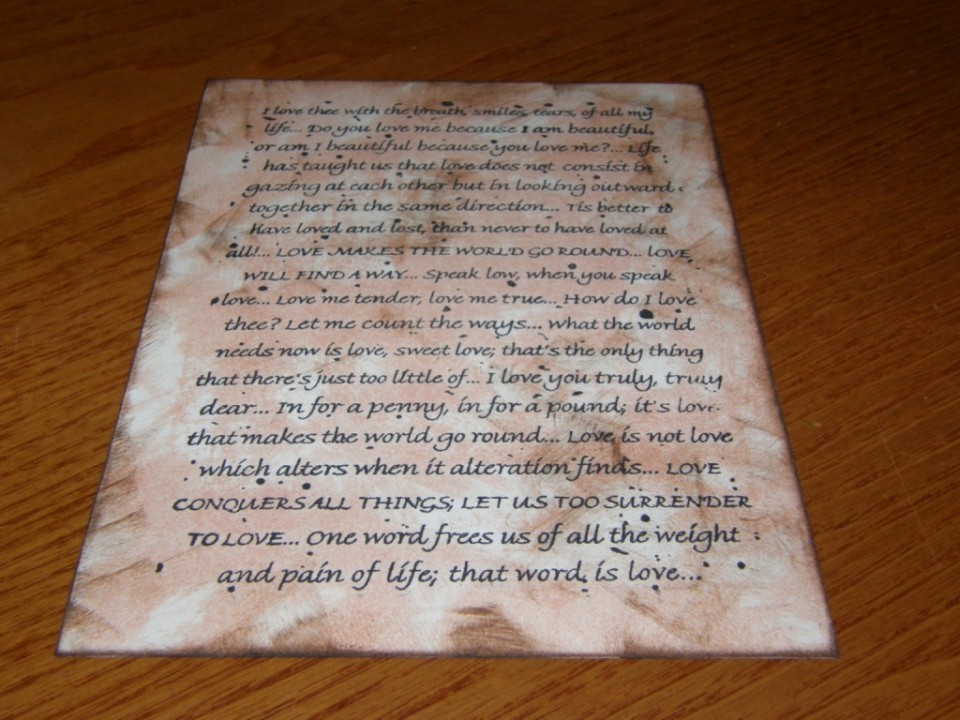 I love thee with the breath, smiles, tears, of all my
life... Do you love me because I am beautiful,
or am I beautiful because you love me?... Life
has taught us that love does not consist in
gazing at each other but in looking outward
together in the same direction... Tis better to
have loved and lost, than never to have loved at
all!... LOVE MAKES THE WORLD GO ROUND... LOVE
WILL FIND A WAY... Speak low, when you speak
love... Love me tender, love me true... How do I love
thee? Let me count the ways... What the world
needs now is love, sweet love; that's the only thing
that there's just too little of... I love you truly, truly
dear... In for a penny, in for a pound; it's love
that makes the world go round... Love is not love
which alters when it alteration finds... LOVE
CONQUERS ALL THINGS; LET US TOO SURRENDER
TO LOVE... One word frees us of all the weight
and pain of life; that word is love...